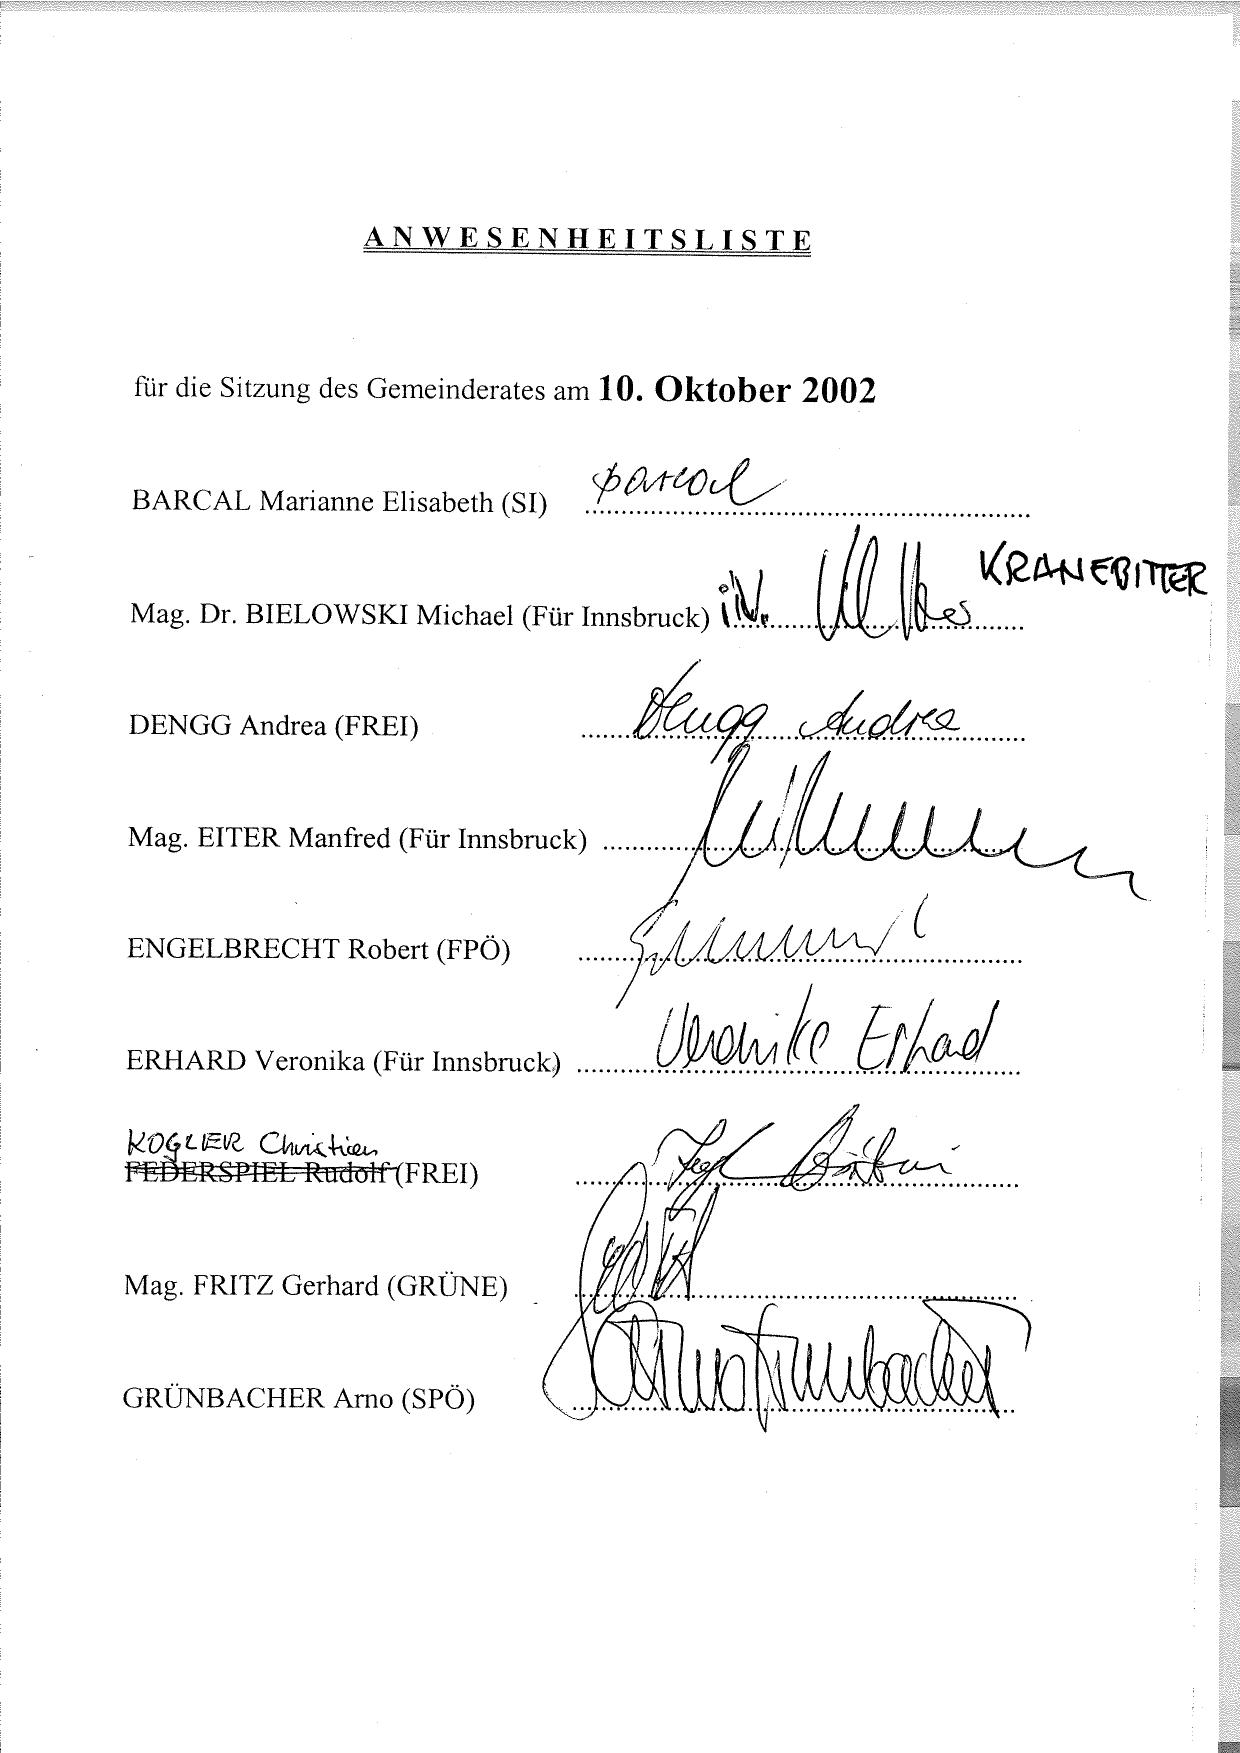 ANWESENHEITSLISTE
für die Sitzung des Gemeinderates am 10. Oktober 2002
BARCAL Marianne Elisabeth (SI) Barcal
KRANEBITTER
Mag. Dr. BIELOWSKI Michael (Für Innsbruck) i.V.
DENGG Andrea (FREI) Dengg Andrea
Mag. EITER Manfred (Für Innsbruck)
ENGELBRECHT Robert (FPÖ)
ERHARD Veronika (Für Innsbruck) Veronika Erhard
KOGLER Christian
FEDERSPIEL Rudolf (FREI)
Mag. FRITZ Gerhard (GRÜNE)
GRÜNBACHER Arno (SPÖ) Arno Grünbacher